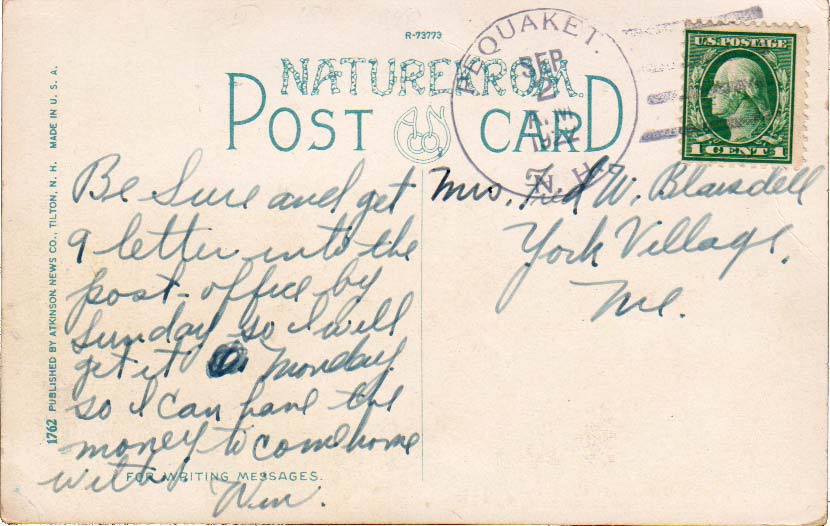 R-73773
NATUREKROM
POST CARD
A.N.CO.
PEQUAKET.
SEP
2
A.M.
N.H.
U.S. POSTAGE
1 CENT 1
1762 PUBLISHED BY ATKINSON NEWS CO., TILTON, N. H. MADE IN U. S. A.
Be Sure and get
a letter into the
post-office by
Sunday so I will
get it Monday
so I can have the
money to come home
with.
Win.
FOR WRITING MESSAGES.
Mrs. Fred W. Blaisdell
York Village,
Me.